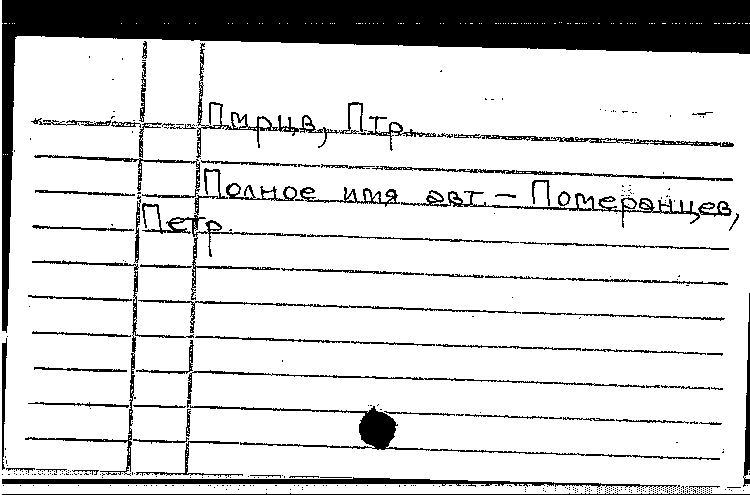 Пмрцв, Птр.
Полное имя авт. – Померанцев,
Петр